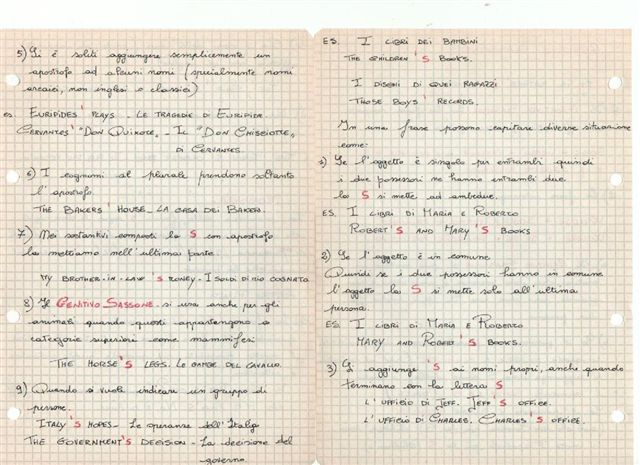 5) Si è soliti aggiungere semplicemente un
apostrofo ad alcuni nomi (specialmente nomi
arcaici, non inglesi o classici)
es. EURIPIDES' PLAYS - LE TRAGEDIE DI EURIPIDE.
CERVANTES' "DON QUIXOTE" - IL "DON CHISCIOTTE"
DI CERVANTES
6) I cognomi al plurale prendono soltanto
l'apostrofo.
THE BAKERS' HOUSE - LA CASA DEI BAKER.
7) Nei sostantivi composti la S con apostrofo
la mettiamo nell'ultima parte.
MY BROTHER-IN-LAW'S MONEY - I SOLDI DI MIO COGNATO
8) Il GENITIVO SASSONE si usa anche per gli
animali quando questi appartengono a
categorie superiori come mammiferi
THE HORSE'S LEGS. LE GAMBE DEL CAVALLO.
9) Quando si vuole indicare un gruppo di
persone.
ITALY'S HOPES - Le speranze dell'Italia
THE GOVERNMENT'S DECISION - La decisione del
governo.
ES. I LIBRI DEI BAMBINI
THE CHILDREN'S BOOKS.
I DISCHI DI QUEI RAGAZZI
THOSE BOYS' RECORDS.
In una frase possono capitare diverse situazione
come:
1) Se l'oggetto è singolo per entrambi quindi
i due possessori ne hanno entrambi due
la S si mette ad ambedue.
ES. I LIBRI DI MARIA E ROBERTO
ROBERT'S AND MARY'S BOOKS
2) Se l'oggetto è in comune
Quindi se i due possessori hanno in comune
l'oggetto la S si mette solo all'ultima
persona.
ES. I LIBRI DI MARIA E ROBERTO
MARY AND ROBERT'S BOOKS.
3) Si aggiunge 'S ai nomi propri, anche quando
terminano con la lettera S
L'UFFICIO DI JEFF. JEFF'S OFFICE.
L'UFFICIO DI CHARLES. CHARLES'S OFFICE.